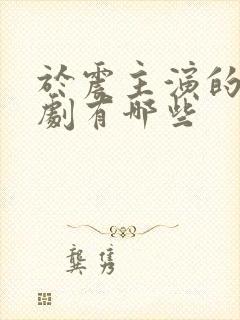 於震主演的
劇有哪些
龔雋